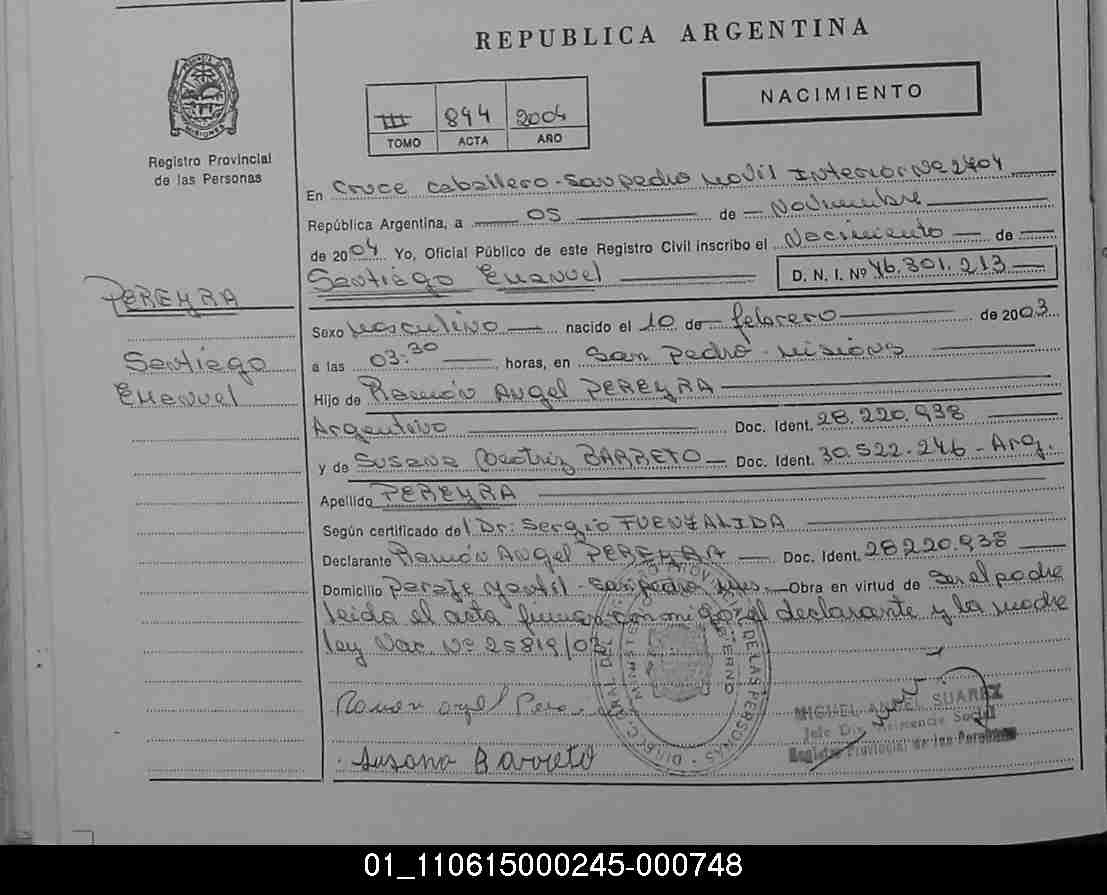 REPUBLICA ARGENTINA
NACIMIENTO
III 894 2004
TOMO ACTA AÑO
Registro Provincial
de las Personas
En Cruce Caballero - San Pedro Movil Interior Nº 2404
República Argentina, a 05 de Noviembre
de 2004 Yo, Oficial Público de este Registro Civil inscribo el Nacimiento de
Santiago Emanuel D. N. I. Nº 46.301.213
PEREYRA
Santiago
Emanuel
Sexo Masculino nacido el 10 de febrero de 2003
a las 03:30 horas, en San Pedro - Misiones
Hijo de Ramón Angel PEREYRA
Argentino Doc. Ident. 28.220.938
y de Susana Beatriz BARRETO Doc. Ident. 30.522.246 - Arg.
Apellido PEREYRA
Según certificado del Dr: Sergio FUENZALIDA
Declarante Ramón Angel PEREYRA Doc. Ident. 28.220.938
Domicilio Paraje Gentil - San Pedro Mnes. Obra en virtud de Ser el padre
leida el acta firman conmigo el declarante y la madre
ley Nac. Nº 25819/03
Ramon angel Pere
Susana Barreto
DE LAS PERSONAS
MIGUEL ANGEL SUAREZ
Jefe Div. Asistencia Social
Registro Provincial de las Personas
01_110615000245-000748